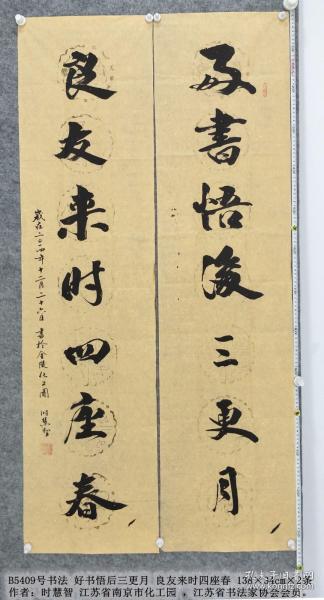 好書悟後三更月
良友来时四座春
歲在二〇一四年十二月二十六日 書於金陵化工園 时慧智
B5409号书法 好书悟后三更月 良友来时四座春 138×34cm×2条
作者：时慧智 江苏省南京市化工园，江苏省书法家协会会员。